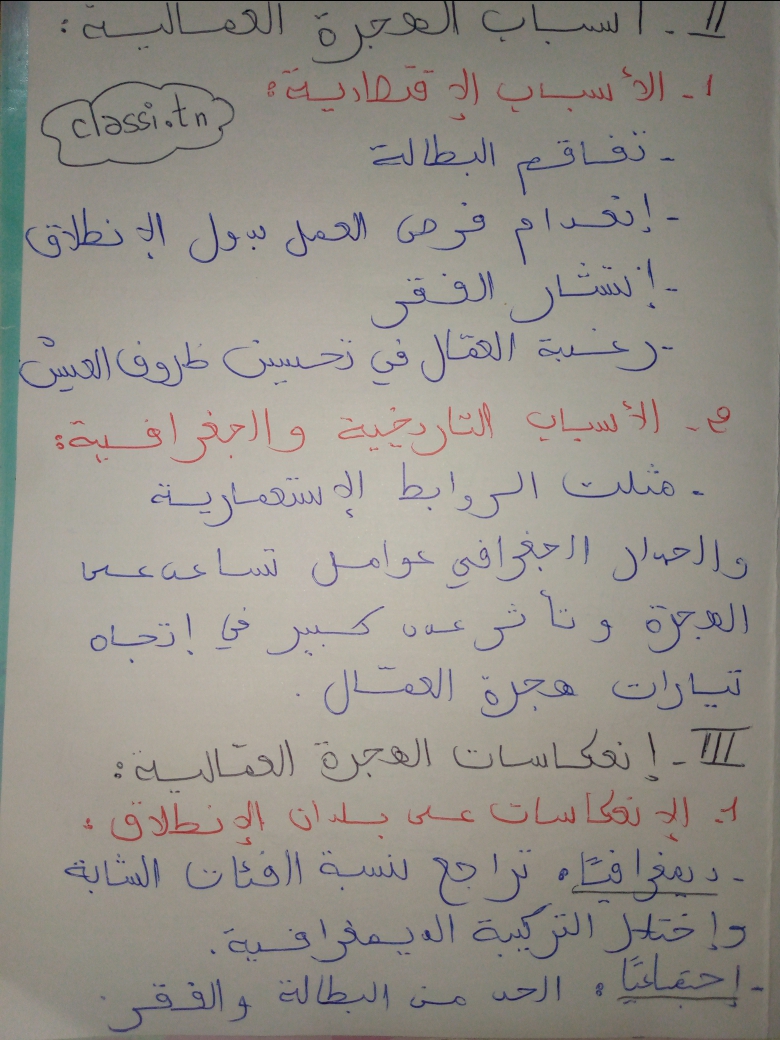 II - أسباب الهجرة العمالية :
1 - الأسباب الإقتصادية :
classi.tn
- تفاقم البطالة
- إنعدام فرص العمل بدول الإنطلاق
- إنتشار الفقر
- رغبة العمّال في تحسين ظروف العيش
2 - الأسباب التاريخية والجغرافية :
- مثلت الروابط الإستعمارية
والجوار الجغرافي عوامل تساعد على
الهجرة و تأثر عدد كبير في إتجاه
تيارات هجرة العمّال .
III - إنعكاسات الهجرة العمّالية :
1 - الإنعكاسات على بلدان الإنطلاق :
- ديمغرافيًّا : تراجع نسبة الفئات الشابة
وإختلال التركيبة الديمغرافية .
- إجتماعيًّا : الحد من البطالة والفقر .